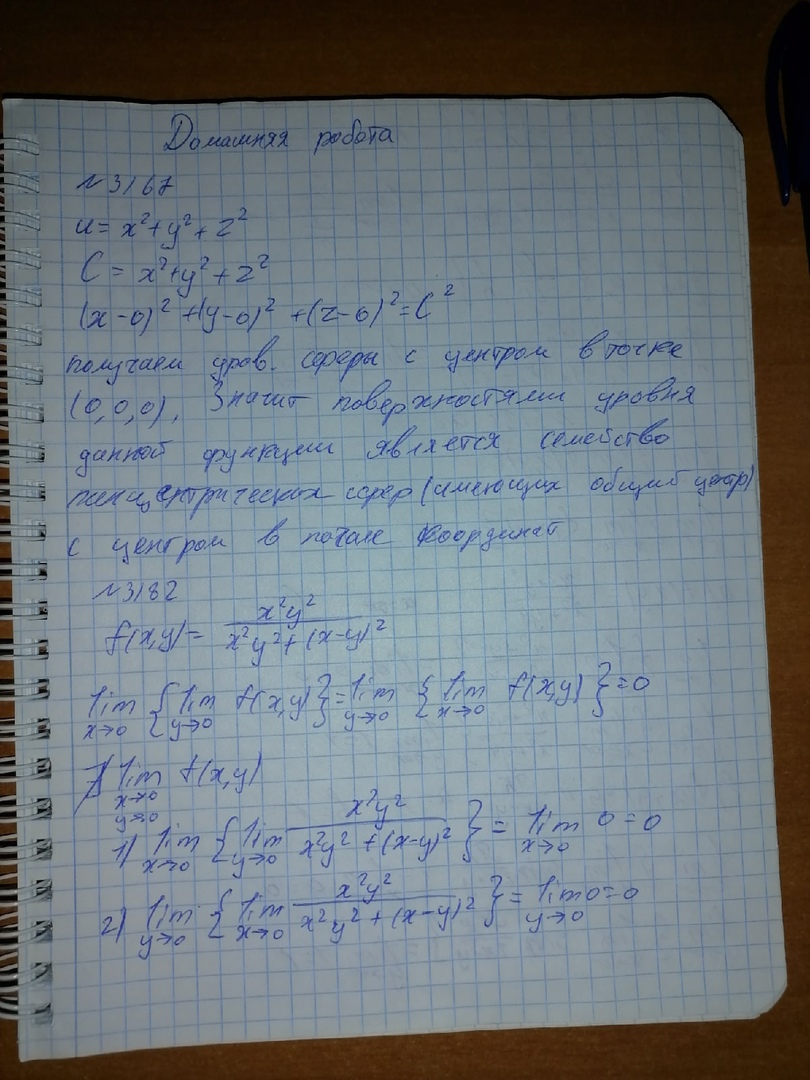 Домашняя робота
№3167
u = x² + y² + z²
C = x² + y² + z²
(x-0)² + (y-0)² + (z-0)² = C²
получаем уров. сферы с центром в точке
(0,0,0), Значит поверхностями уровня
данной функции является семейство
сфер (имеющих общий центр)
с центром в начале координат
№3182
f(x,y) = x²y² / (x²y² + (x-y)²)
lim x→0 { lim y→0 f(x,y) } = lim y→0 { lim x→0 f(x,y) } = 0
∄ lim x→0 y→0 f(x,y)
1) lim x→0 { lim y→0 x²y² / (x²y² + (x-y)²) } = lim x→0 0 = 0
2) lim y→0 { lim x→0 x²y² / (x²y² + (x-y)²) } = lim y→0 0 = 0